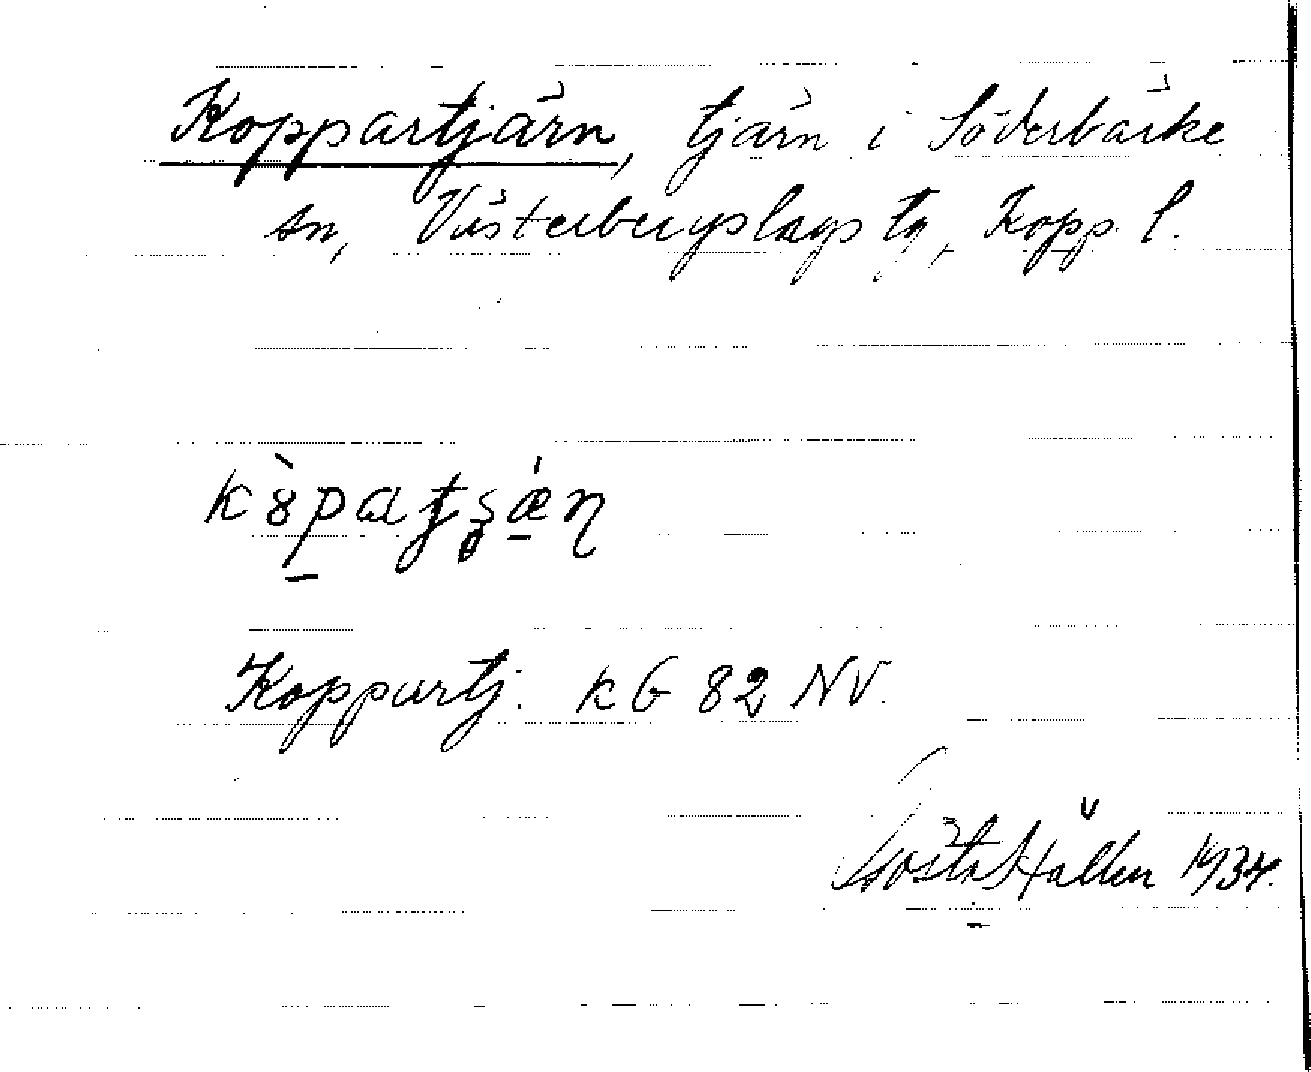 Koppartjärn, tjärn i Söderbärke
sn, Västerbergslags tg, Kopp. l.
Koppartj. kG 82 NV.
Gösta Hallén 1934.